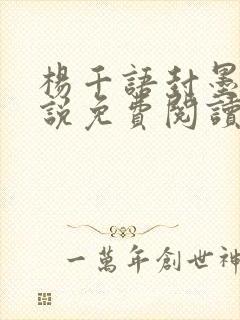 楊千語封墨
說免費閱讀
一萬年創世神